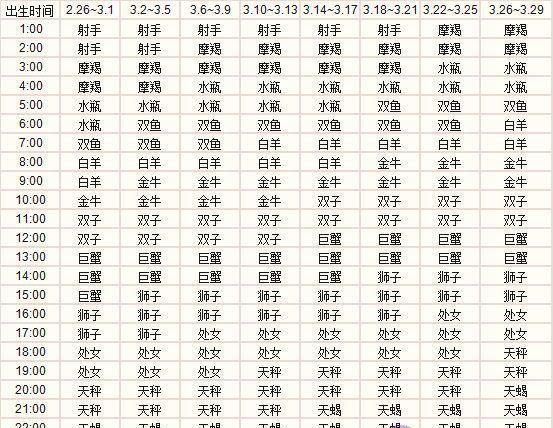 出生时间 2.26~3.1 3.2~3.5 3.6~3.9 3.10~3.13 3.14~3.17 3.18~3.21 3.22~3.25 3.26~3.29
1:00 射手 射手 射手 射手 射手 射手 摩羯 摩羯
2:00 射手 射手 摩羯 摩羯 摩羯 摩羯 摩羯 摩羯
3:00 摩羯 摩羯 摩羯 摩羯 摩羯 摩羯 水瓶 水瓶
4:00 摩羯 摩羯 水瓶 水瓶 水瓶 水瓶 水瓶 水瓶
5:00 水瓶 水瓶 水瓶 水瓶 水瓶 双鱼 双鱼 双鱼
6:00 水瓶 双鱼 双鱼 双鱼 双鱼 双鱼 双鱼 白羊
7:00 双鱼 双鱼 双鱼 白羊 白羊 白羊 白羊 白羊
8:00 白羊 白羊 白羊 白羊 白羊 金牛 金牛 金牛
9:00 白羊 金牛 金牛 金牛 金牛 金牛 金牛 金牛
10:00 金牛 金牛 金牛 金牛 双子 双子 双子 双子
11:00 双子 双子 双子 双子 双子 双子 双子 双子
12:00 双子 双子 双子 双子 巨蟹 巨蟹 巨蟹 巨蟹
13:00 巨蟹 巨蟹 巨蟹 巨蟹 巨蟹 巨蟹 巨蟹 巨蟹
14:00 巨蟹 巨蟹 巨蟹 巨蟹 巨蟹 狮子 狮子 狮子
15:00 巨蟹 狮子 狮子 狮子 狮子 狮子 狮子 狮子
16:00 狮子 狮子 狮子 狮子 狮子 狮子 处女 处女
17:00 狮子 狮子 处女 处女 处女 处女 处女 处女
18:00 处女 处女 处女 处女 处女 处女 处女 天秤
19:00 处女 处女 处女 天秤 天秤 天秤 天秤 天秤
20:00 天秤 天秤 天秤 天秤 天秤 天秤 天秤 天蝎
21:00 天秤 天秤 天秤 天秤 天蝎 天蝎 天蝎 天蝎